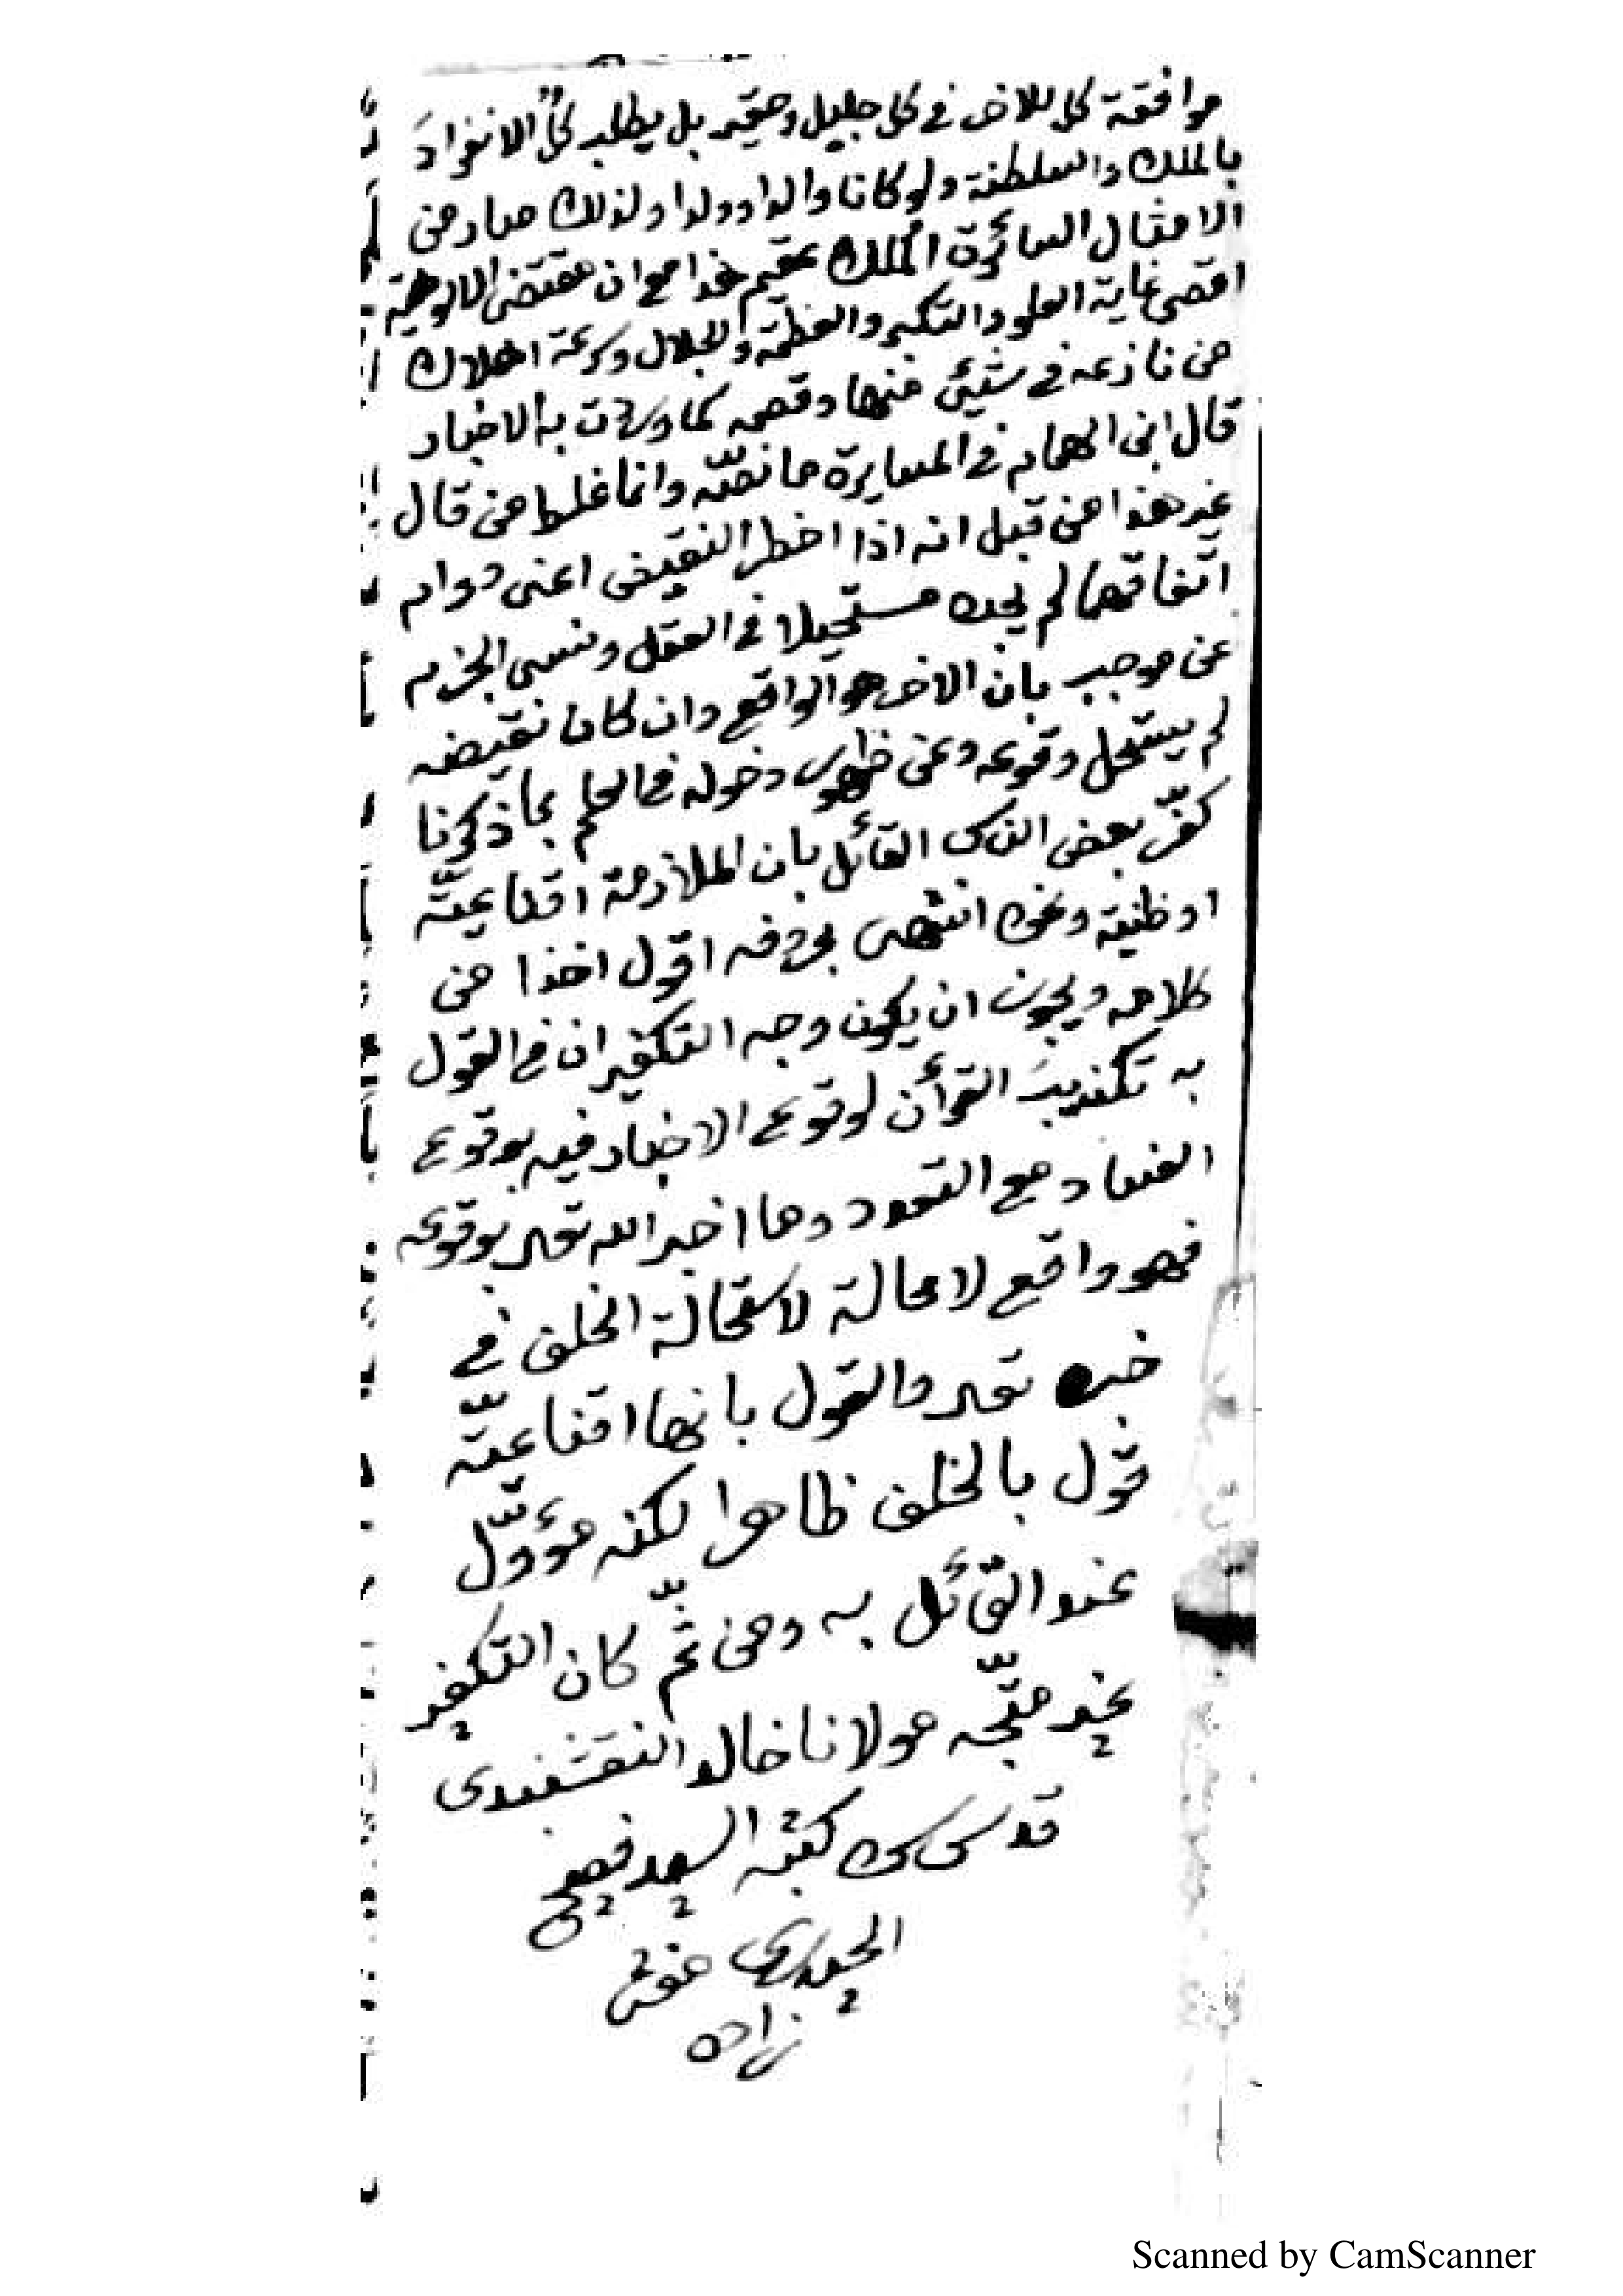 موافقة كل للاخر في كل جليل وحقير بل يطلب كلٌّ الانفرادَ
بالملك والسلطنة ولو كانا والدا وولدا ولذلك صار من
الامثال السائرة المُلك عقيم هذا مع ان مقتضى الالوهية
اقصى غاية العلو والتكبر والعظمة والجلال وسرعة اهلاك
من نازعه في شيئ منها وقصمه كما وردت به الاخبار
قال ابن الهمام في المسايرة ما نصّه وانما غلط من قال
غير هذا من قبل انه اذا اخطر النقيض اعنى دوام
اتفاقهما لم يجده مستحيلا في العقل ونسى الجزم
عن موجب بان الاخر هو الواقع وان كان نقيضه
لم يستحل وقوعه وعن ظهور دخوله في العلم بما ذكرنا
كفّر بعض الناس القائل بان الملازمة اقناعيّة
او ظنية ونحوه انتهى بحروفه اقول اخذا من
كلامه ويجوز ان يكون وجه التكفير ان في القول
به تكذيبَ القرأن لوقوع الاخبار فيه بوقوع
الفساد مع التعدد وما اخبر الله تعه بوقوعه
فهو واقع لا محالة لاستحالة الخلف في
خبره تعه والقول بانها اقناعيّة
قول بالخلف ظاهرا لكنه مؤوّل
عند القائل به ومن ثمّ كان التكفير
غير متّجه مولانا خالد النقشبندى
قدس سره كتبه السيد فصيح
الحيدرى مفتى
زاده
Scanned by CamScanner